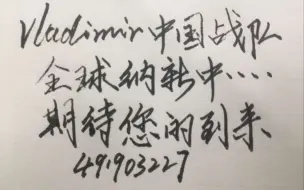 Vladimir中国战队
全球纳新中....
期待您的到来
49903227